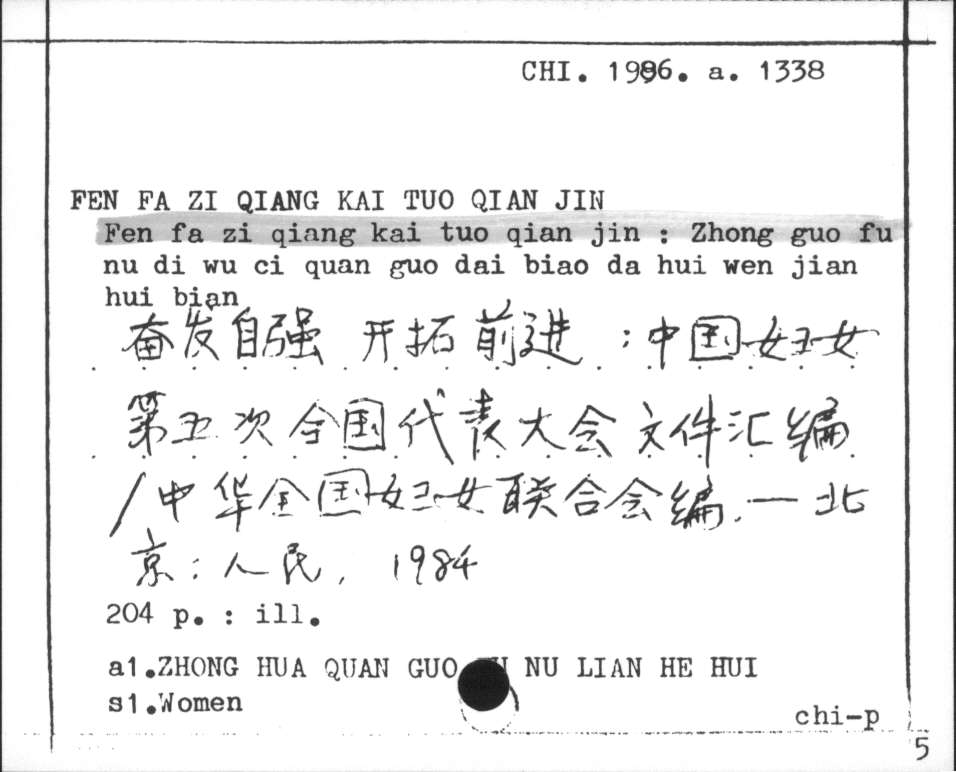 CHI. 1986. a. 1338
FEN FA ZI QIANG KAI TUO QIAN JIN
Fen fa zi qiang kai tuo qian jin : Zhong guo fu
nu di wu ci quan guo dai biao da hui wen jian
hui bian
奋发自强 开拓前进 : 中国妇女
第五次全国代表大会文件汇编
/中华全国妇女联合会编. — 北
京 : 人民, 1984
204 p. : ill.
a1.ZHONG HUA QUAN GUO NU LIAN HE HUI
s1.Women
chi-p
5